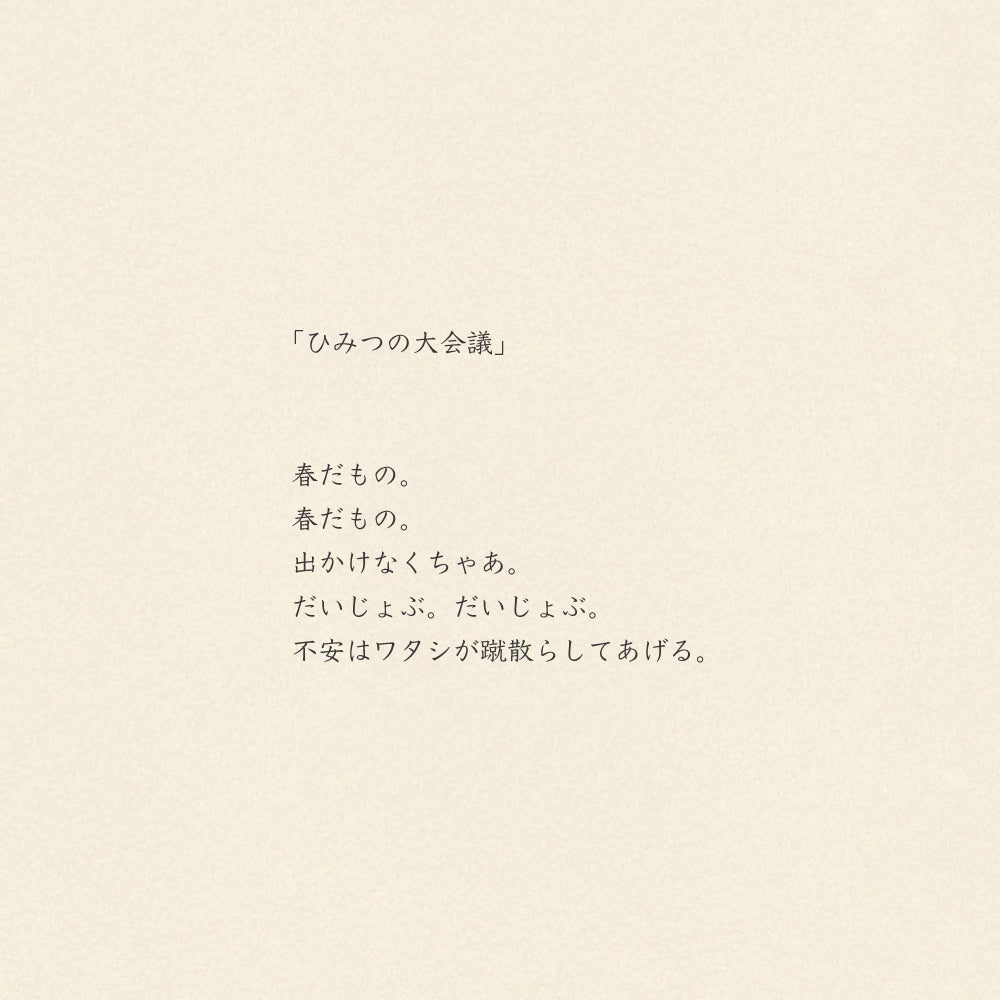 「ひみつの大会議」
春だもの。
春だもの。
出かけなくちゃあ。
だいじょぶ。だいじょぶ。
不安はワタシが蹴散らしてあげる。